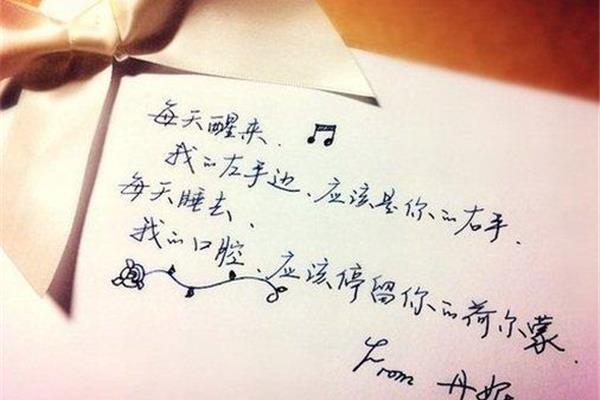 每天醒来，
我的左手边、应该是你的右手．
每天睡去、
我的口腔、应该停留你的荷尔蒙．
From 丹妮